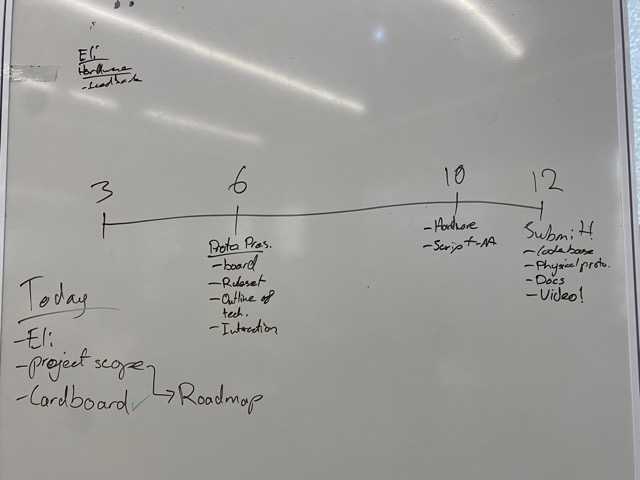 Eli
Hardware
- feedback
3
6
10
12
Proto Pres.
- board
- Ruleset
- Outline of
tech.
- Interaction
- Hardware
- Script
Submit!
- Codebase
- Physical proto.
- Docs
- Video!
Today
- Eli
- project scope
- Cardboard ✓
→ Roadmap